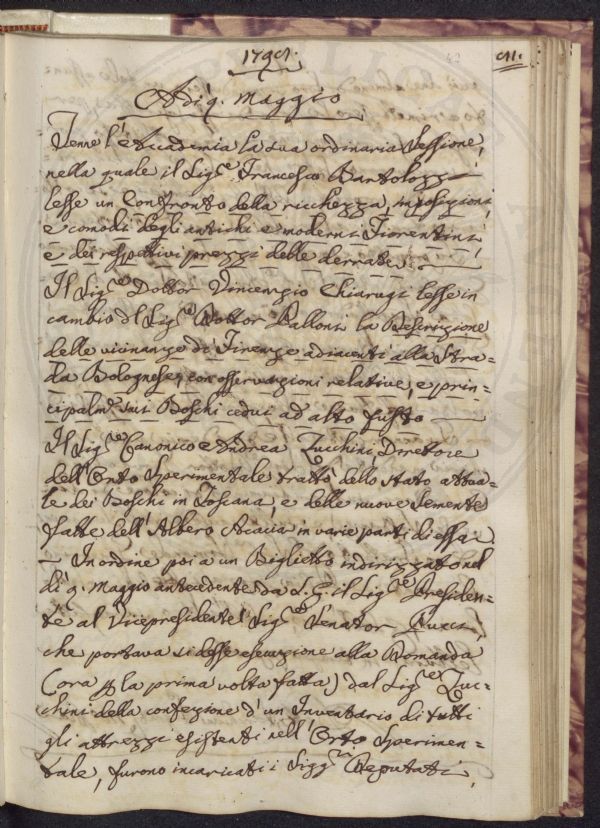 1794.
41.
Adì 9. Maggio
Tenne l'Accademia la sua ordinaria Sessione,
nella quale il Sig.e Francesco Bartolozzi
lesse un Confronto della ricchezza, imposizioni,
e comodi degli antichi e moderni Fiorentini,
e dei respettivi prezzi delle derrate.
Il Sig.e Dottor Vincenzio Chiarugi lesse in
cambio del Sig.e Dottor Palloni la Descrizione
delle vicinanze di Firenze adiacenti alla Stra=
da Bolognese, con osservazioni relative, e prin=
cipalm.e sui Boschi cedui ad alto fusto
Il Sig.e Canonico Andrea Zucchini Diretore
dell'Orto Sperimentale trattò dello stato attua=
le dei Boschi in Toscana, e delle nuove Semente
fatte dell'Albero Acacia in varie parti di essa.
— In ordine poi a un Biglietto indirizzato nel
dì 9. Maggio antecedente da S. E. il Sig.e Presiden=
te al Vicepresidente Sig.e Senator
che portava si desse esecuzione alla Domanda
(ora p la prima volta fatta) dal Sig.e Zuc=
chini della confezione d'un Inventario di tutti
gli attrezzi esistenti nell'Orto Sperimen=
tale, furono incaricati i Sigg.ri Deputati